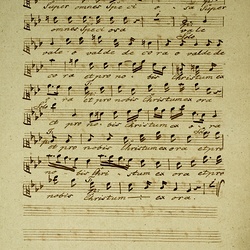 Super omnes Speci o sa Super
omnes Speciosa vale
vale o valde de cora o valde de
co ra et pro no bis Christum ex o
ra et pro nobis Christum ex ora
et pro no bis Christum ex o ra
et pro nobis Christum ex ora
bis Chri stum ex o ra
nobis Christum ex ora.